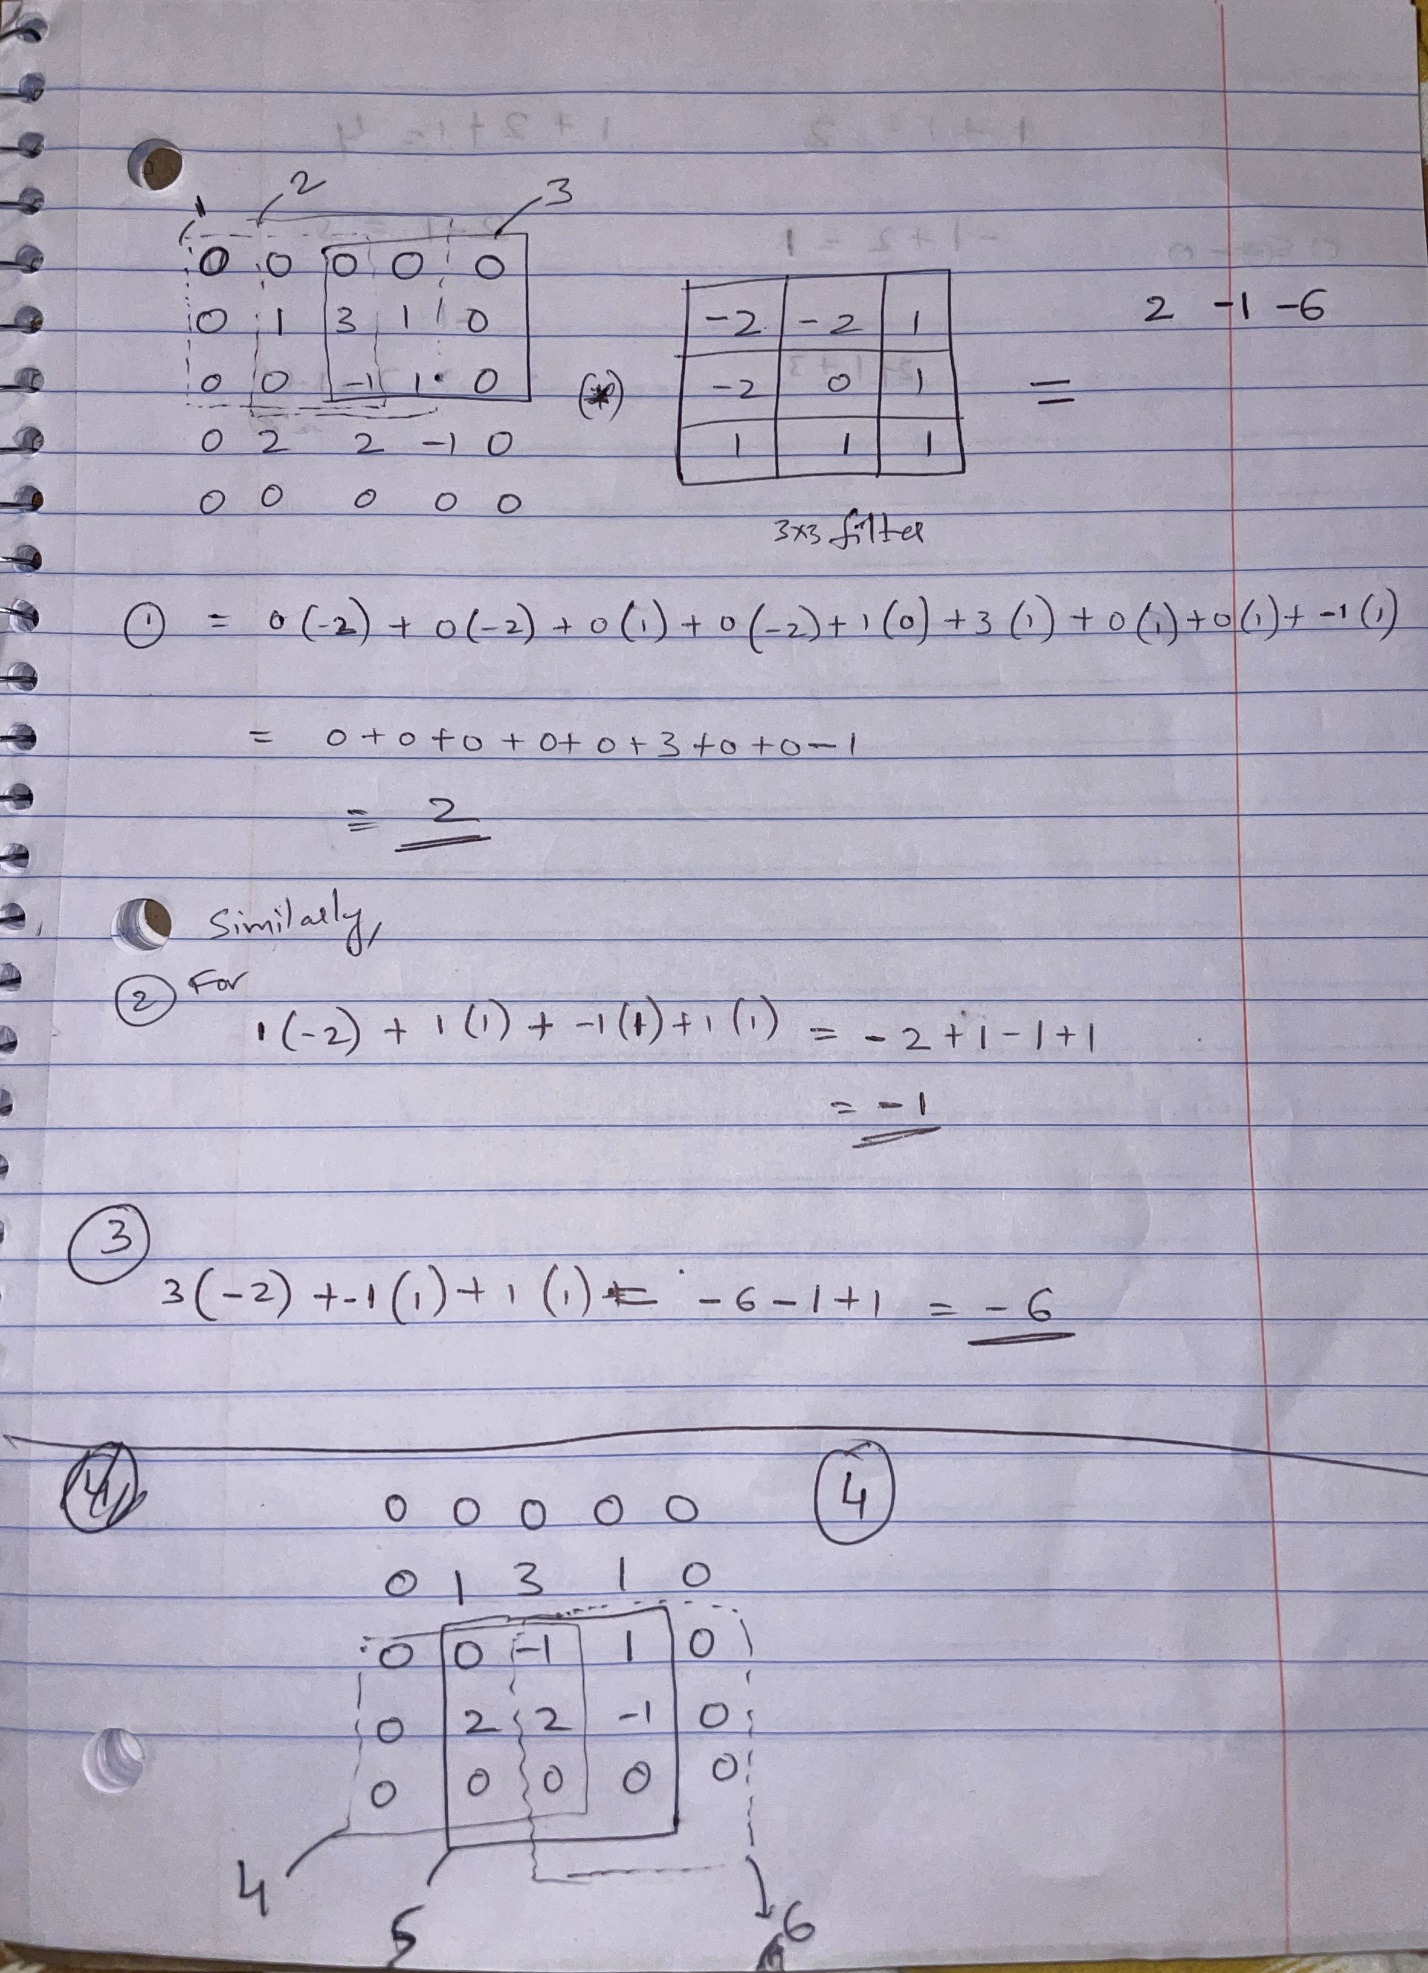 2 3
1
0 0 0 0 0
0 1 3 1 0
0 0 -1 1 0
0 2 2 -1 0
0 0 0 0 0
(*)
-2 -2 1
-2 0 1
1 1 1
3x3 filter
=
2 -1 -6
① = 0(-2) + 0(-2) + 0(1) + 0(-2) + 1(0) + 3(1) + 0(1) + 0(1) + -1(1)
= 0+0+0+0+0+3+0+0-1
= 2
Similarly,
② For
1(-2) + 1(1) + -1(1) + 1(1) = -2+1-1+1
= -1
③
3(-2) + -1(1) + 1(1) = -6-1+1 = -6
④
0 0 0 0 0
0 1 3 1 0
0 0 -1 1 0
0 2 2 -1 0
0 0 0 0 0
4 5 6